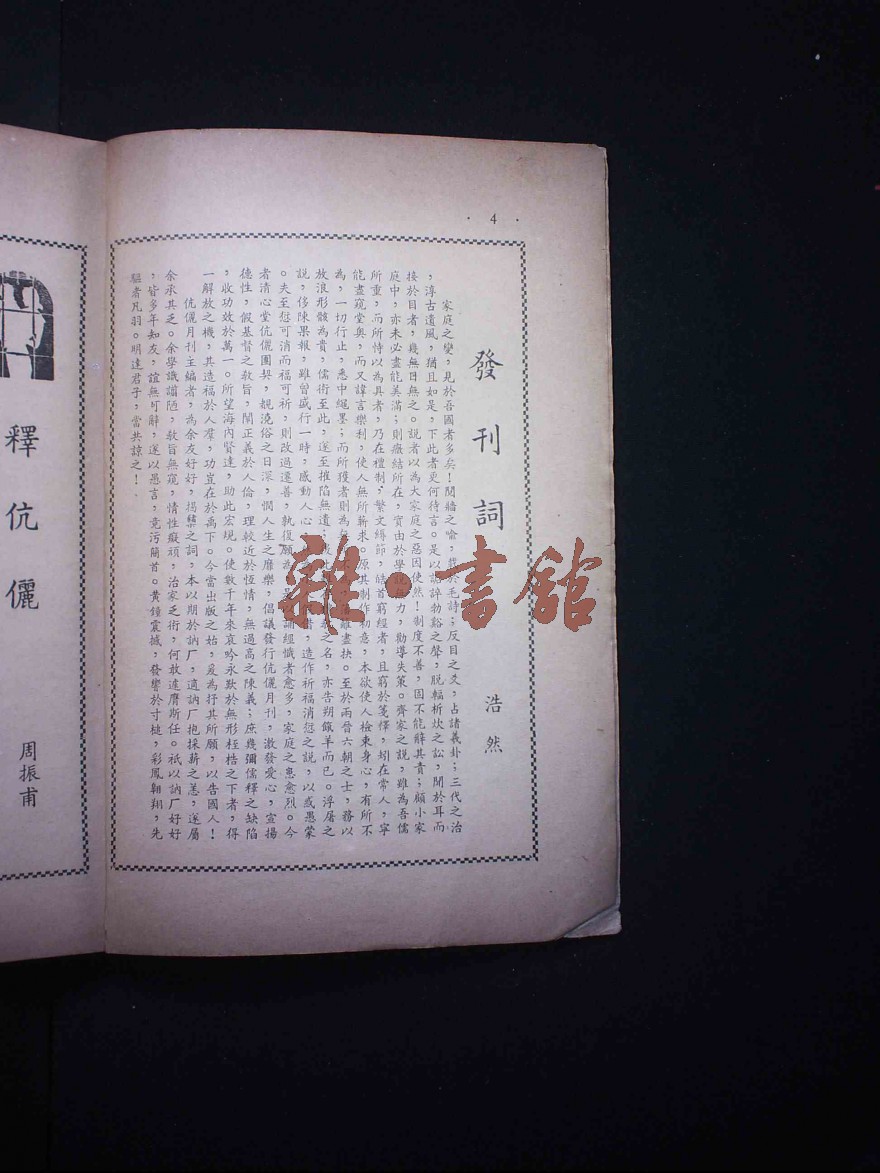 · 4 ·
發刊詞
浩然
家庭之變，見於吾國者多矣！鬩牆之喻，載於毛詩；反目之爻，占諸義卦；三代之治
，淳古遺風，猶且如是，下此者更何待言。是以詬誶勃谿之聲，脫輻析炊之訟，聞於耳而
接於目者，幾無日無之。說者以為大家庭之惡因使然！制度不善，固不能辭其責；顧小家
庭中，亦未必盡能美滿；則癥結所在，實由於學說無力，勸導失策。齊家之說，雖為吾儒
所重，而所恃以為具者，乃在禮制，繁文縟節，皓首窮經者，且窮於箋釋，矧在常人，寧
能盡窺堂奧，而又諱言樂利，使人無所蘄求。原其制作初意，本欲使人檢束身心，有所不
為，一切行止，悉中繩墨；而所獲者則為 藩籬盡抉。至於兩晉六朝之士，務以
放浪形骸為貴，儒術至此，遂至摧陷無遺； 之名，亦告朔餼羊而已。浮屠之
說，侈陳果報，雖曾盛行一時，感動人心 ，造作祈福消愆之說，以惑愚蒙
。夫至愆可消而福可祈，則改過遷善，孰復願為 是以誦經懺者愈多，家庭之患愈烈。今
者清心堂伉儷團契，覩澆俗之日深，憫人生之靡樂，倡議發行伉儷月刊，激發愛心，宣揚
德性，假基督之教旨，闡正義於人倫，理較近於恆情，無過高之陳義；庶幾彌儒釋之缺陷
，收功效於萬一。所望海內賢達，助此宏規。使數千年來哀吟永歎於無形桎梏之下者，得
一解放之機，其造福於人羣，功豈在於禹下。今當出版之始，爰為抒其所願，以告國人！
伉儷月刊主編者，為余友好好，揭櫫之詞，本以期於訥厂，適訥厂抱採薪之恙，遂屬
余承其乏。余學識譾陋，教旨無窺，情性癡頑，治家乏術，何敢遽膺斯任。祇以訥厂好好
，皆多年知友，誼無可辭，遂以愚言，竟污簡首。黃鐘震撼，發響於寸槌，彩鳳翱翔，先
驅者凡羽。明達君子，當共諒之！
釋伉儷
周振甫
雜·書館